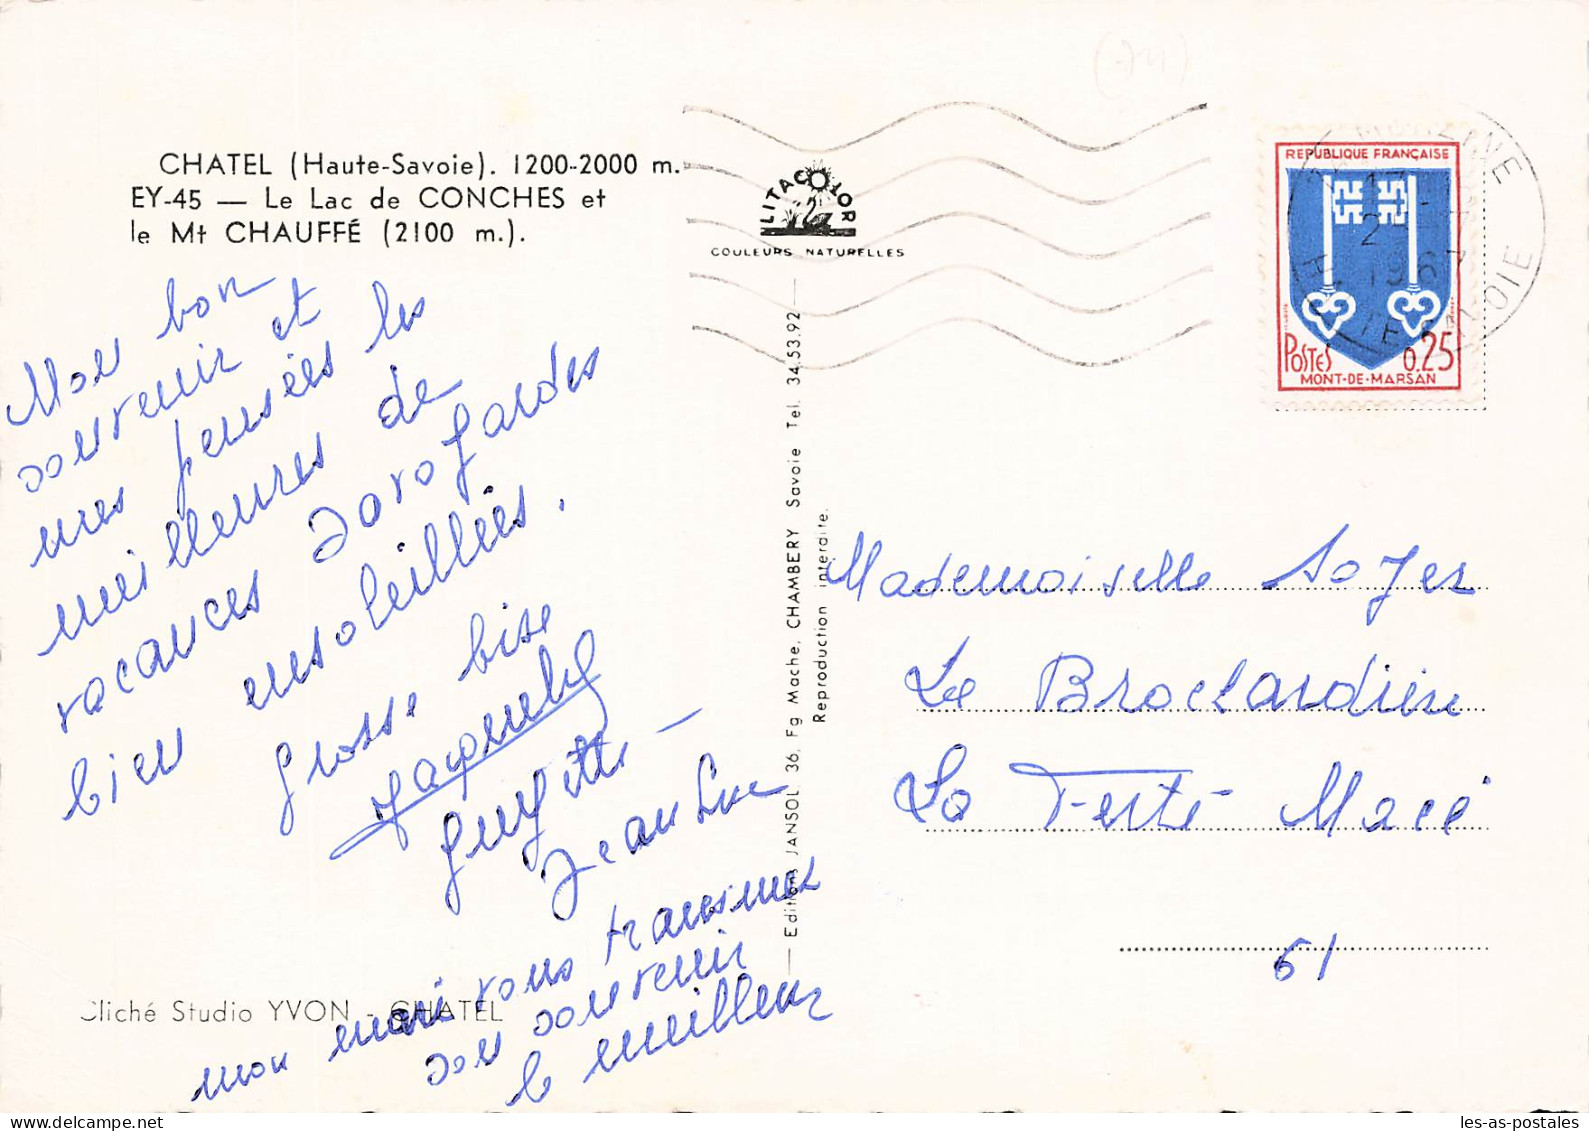 CHATEL (Haute-Savoie). 1200-2000 m.
EY-45 — Le Lac de CONCHES et
le Mt CHAUFFÉ (2100 m.).
LITACOLOR
COULEURS NATURELLES
RÉPUBLIQUE FRANÇAISE
POSTES 0.25
MONT-DE-MARSAN
MORZINE
1967
HAUTE SAVOIE
(74)
Mon bon
souvenir et
mes pensées les
meilleures de
vacances Savoyardes
bien ensoleillées.
Grosse bise
Guyette -
Jean Luc
mon mari vous transmet
son souvenir
le meilleur
Editions JANSOL 36, Fg Mache, CHAMBERY Savoie Tel. 34.53.92 —
Reproduction interdite.
Mademoiselle Soyer
La Brochardière
La Ferté Macé
61
Cliché Studio YVON - CHATEL
les-as-postales